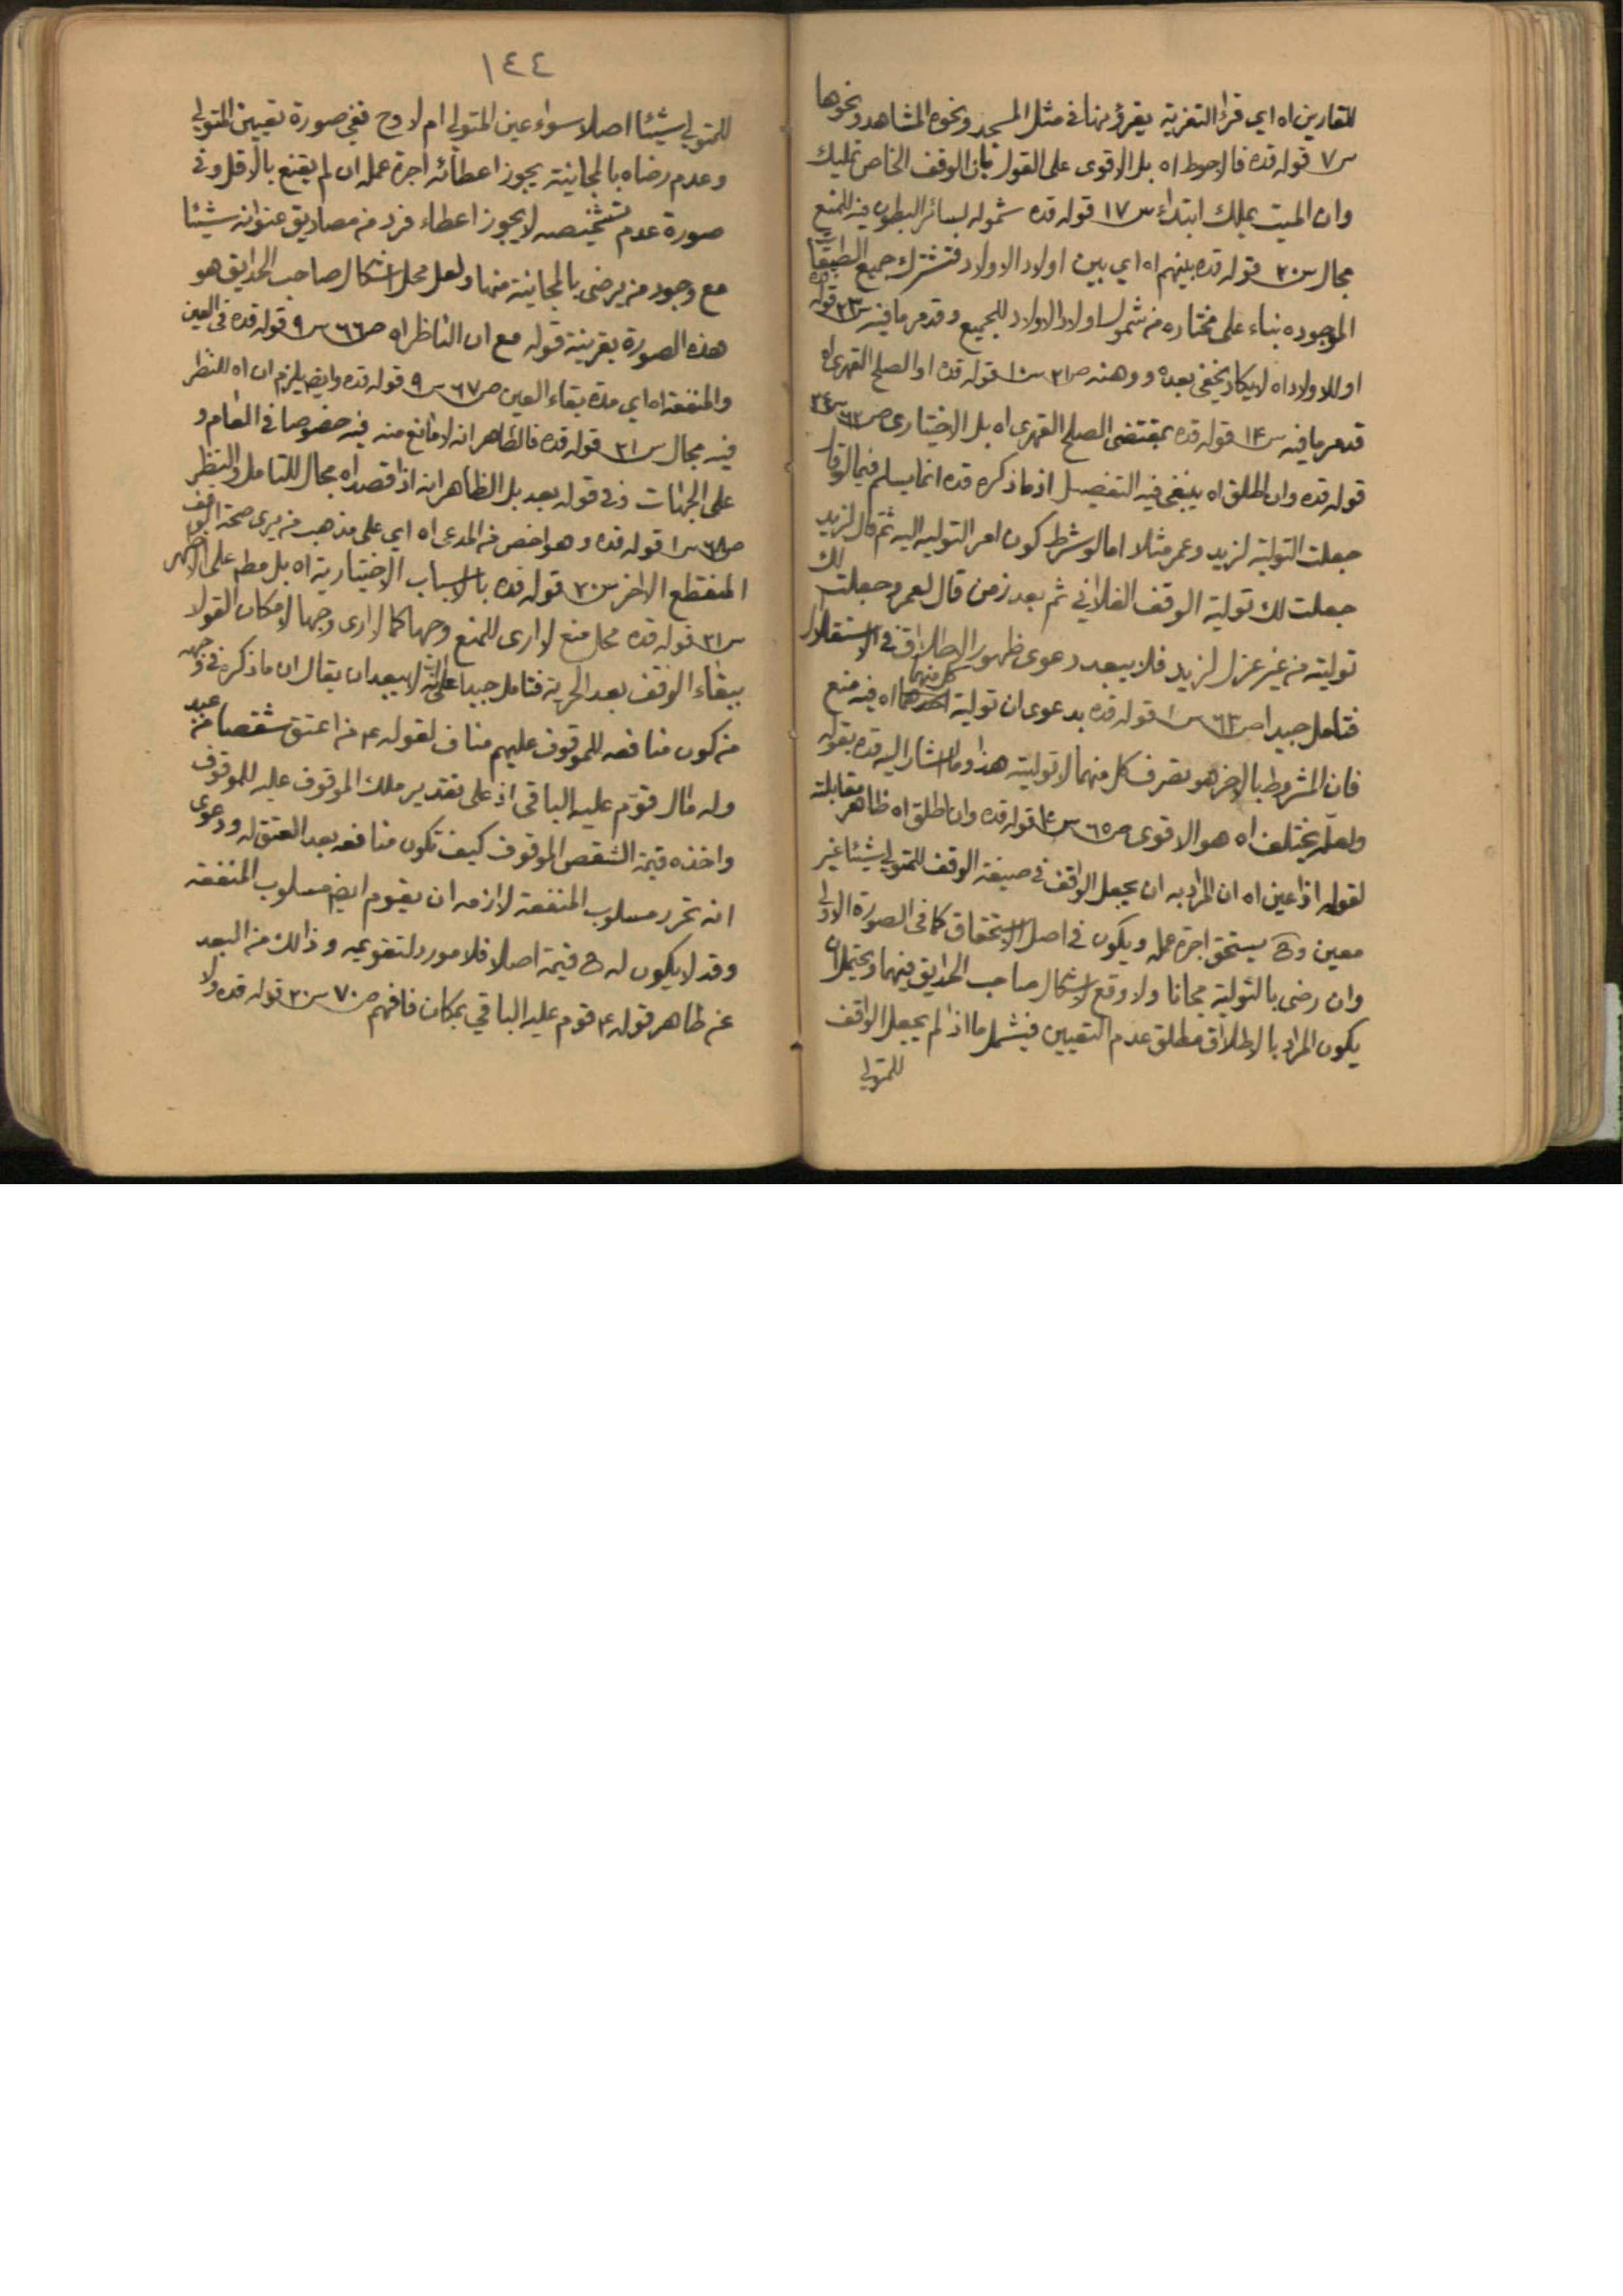 للقارين اه اي قراء التعزية يقرؤنها في مثل المسجد ونحوه المشاهد ونحوها
س٧ قوله قده فالاحوط اه بل الاقوى على القول بان الوقف الخاص تمليك
وان الميت يملك ابتداء س١٧ قوله قده شموله لسائر البطون فيه للمنع
مجال س٢٠ قوله قده بينهم اه اي بين اولاد الاولاد فتشترك جميع الطبقات
الموجوده بناء على مختاره من شمول اولاد الاولاد للجميع وقد مر ما فيه س٢٣ قوله قده
او للاولاد اه لا يكاد يخفى بعده ووهنه ص٢١ س١٠ قوله قده او الصلح القهري اه
قد مر ما فيه س١٤ قوله قده بمقتضى الصلح القهري اه بل الاختياري ص٦٢ س٢٤
قوله قده وان اطلق اه ينبغي فيه التفصيل اذ ما ذكره قده انما يسلم فيما لو قال
جعلت التولية لزيد وعمر مثلا اما لو شرط كون امر التوليه اليه ثم قال لزيد
جعلت لك تولية الوقف الفلاني ثم بعد زمن قال لعمرو جعلت لك
توليته من غير عزل لزيد فلا يبعد دعوى ظهور الاطلاق في الاستقلال
فتامل جيدا ص٦٣ س١ قوله قده بدعوى ان تولية كل منهما اه فيه منع
فان المشروط بالاخر هو تصرف كل منهما لا توليته هذا وما اشار اليه قده بقوله
ولعله يختلف اه هو الاقوى ص٦٥ س١٥ قوله قده وان اطلق اه ظاهر مقابلته
لقوله اذا عين اه ان المراد به ان يجعل الواقف في صيغة الوقف للمتولي شيئا غير
معين وح يستحق اجرة عمله ويكون في اصل الاستحقاق كما في الصورة الاولى
وان رضى بالتولية مجانا ولا وقع لاشكال صاحب الحدايق فيهما ويحتمل ان
يكون المراد بالاطلاق مطلق عدم التعيين فيشمل ما اذا لم يجعل الواقف
للمتولي
١٤٤
للمتولي شيئا اصلا سواء عين المتولي ام لا وح ففي صورة تعيين المتولي
وعدم رضاه بالمجانية يجوز اعطائه اجرة عمله ان لم يقنع بالاقل وفي
صورة عدم تشخيصه لا يجوز اعطاء فرد من مصاديق عنوانه شيئا
مع وجود من يرضى بالمجانية منها ولعل محل اشكال صاحب الحدايق هو
هذه الصورة بقرينة قوله مع ان الناظر اه ص٦٦ س٩ قوله قده في العين
والمنفعة اه اي مدة بقاء العين ص٦٧ س٩ قوله قده وايض يلزم ان اه للنظر
فيه مجال س٢١ قوله قده فالظاهر انه لا مانع منه فيه خصوصا في العام و
على الجهات وفي قوله بعد بل الظاهر انه اذا قصد اه مجال للتامل والنظر
ص٦٨ س١ قوله قده وهو اخص من المدعى اه اي على مذهب من يرى صحة الوقف
المنقطع الاخر س٢٠ قوله قده بالاسباب الاختيارية اه بل مطم على الاظهر
س٢١ قوله قده محل منع لا ارى للمنع وجها كما لا ارى وجها لامكان القول
ببقاء الوقف بعد الحرية فتامل جيدا على انه لا يبعد ان يقال ان ما ذكره في وجهه
من كون منافعه للموقوف عليهم مناف لقوله ع من اعتق شقصا من عبد
وله مال قوم عليه الباقي اذ على تقدير ملك الموقوف عليه للموقوف
واخذه قيمة الشقص الموقوف كيف تكون منافعه بعد العتق له ودعوى
انه تحرر مسلوب المنفعة لازمه ان يقوم ايض مسلوب المنفعة
وقد لا يكون له ح قيمة اصلا فلا مورد لتقويمه وذالك من البعد
عن ظاهر قوله ع قوم عليه الباقي بمكان فافهم ص٧٠ س٢٠ قوله قده ولا